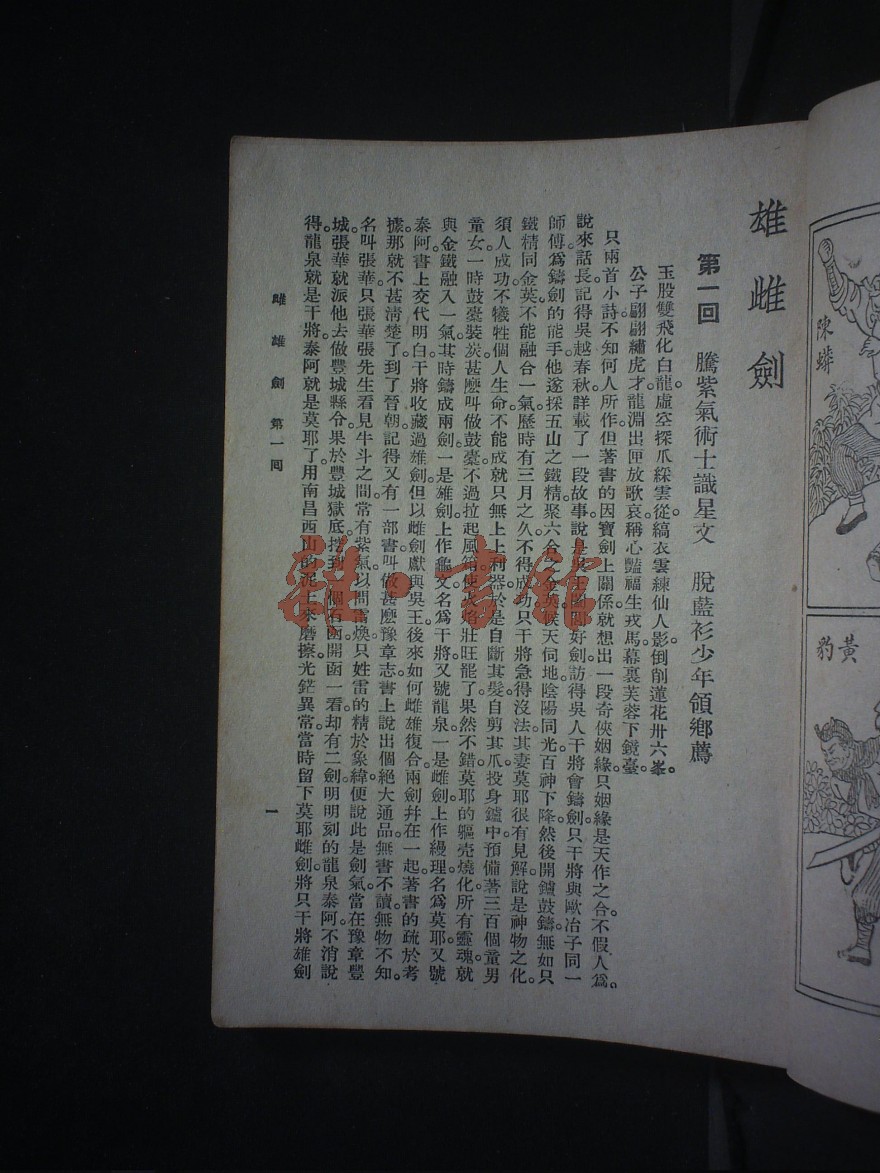 雄雌劍
第一回 騰紫氣術士識星文 脫藍衫少年領鄉薦
玉股雙飛化白龍。虛空探爪綵雲從。縞衣雲練仙人影。倒削蓮花卅六峯。
公子翩翩繡虎才。龍淵出匣放歌哀。稱心豔福生戎馬。幕裏芙蓉下鏡臺。
只兩首小詩不知何人所作。但著書的因寶劍上關係。就想出一段奇俠姻緣。只姻緣是天作之合。不假人爲。
說來話長。記得吳越春秋。詳載了一段故事。說是吳王闔閭好劍。訪得吳人干將會鑄劍。只干將與歐冶子同一
師傅。爲鑄劍的能手。他遂採五山之鐵精。聚六合之金英。候天伺地。陰陽同光。百神下降。然後開鑪鼓鑄。無如只
鐵精同金英不能融合一氣。歷時有三月之久。不得成功。只干將急得沒法。其妻莫耶很有見解。說是神物之化。
須人成功。不犧牲個人生命。不能成就只無上上利器。於是自斷其髮。自剪其爪。投身鑪中。預備著三百個童男
童女。一時鼓橐裝炭。甚麽叫做鼓橐。不過拉起風箱。使火焰壯旺罷了。果然不錯。莫耶的軀壳燒化。所有靈魂就
與金鐵融入一氣。其時鑄成兩劍。一是雄劍。上作龜文。名爲干將。又號龍泉。一是雌劍。上作縵理。名爲莫耶。又號
泰阿。書上交代明白。干將收藏過雄劍。但以雌劍獻與吳王。後來如何雌雄復合。兩劍幷在一起。著書的疏於考
據。那就不甚清楚了。到了晉朝。記得又有一部書。叫做甚麽豫章志。書上說出個絕大通品。無書不讀。無物不知。
名叫張華。只張華張先生看見牛斗之間。常有紫氣。以問雷煥。只姓雷的精於象緯。便說此是劍氣。當在豫章豐
城。張華就派他去做豐城縣令。果於豐城獄底。撈到一個石函。開函一看。却有二劍。明明刻的龍泉泰阿。不消說
得。龍泉就是干將。泰阿就是莫耶了。用南昌西山的泥土來磨擦。光鋩異常。當時留下莫耶雌劍。將只干將雄劍
雌雄劍 第一回
一
陳蟒
黃豹